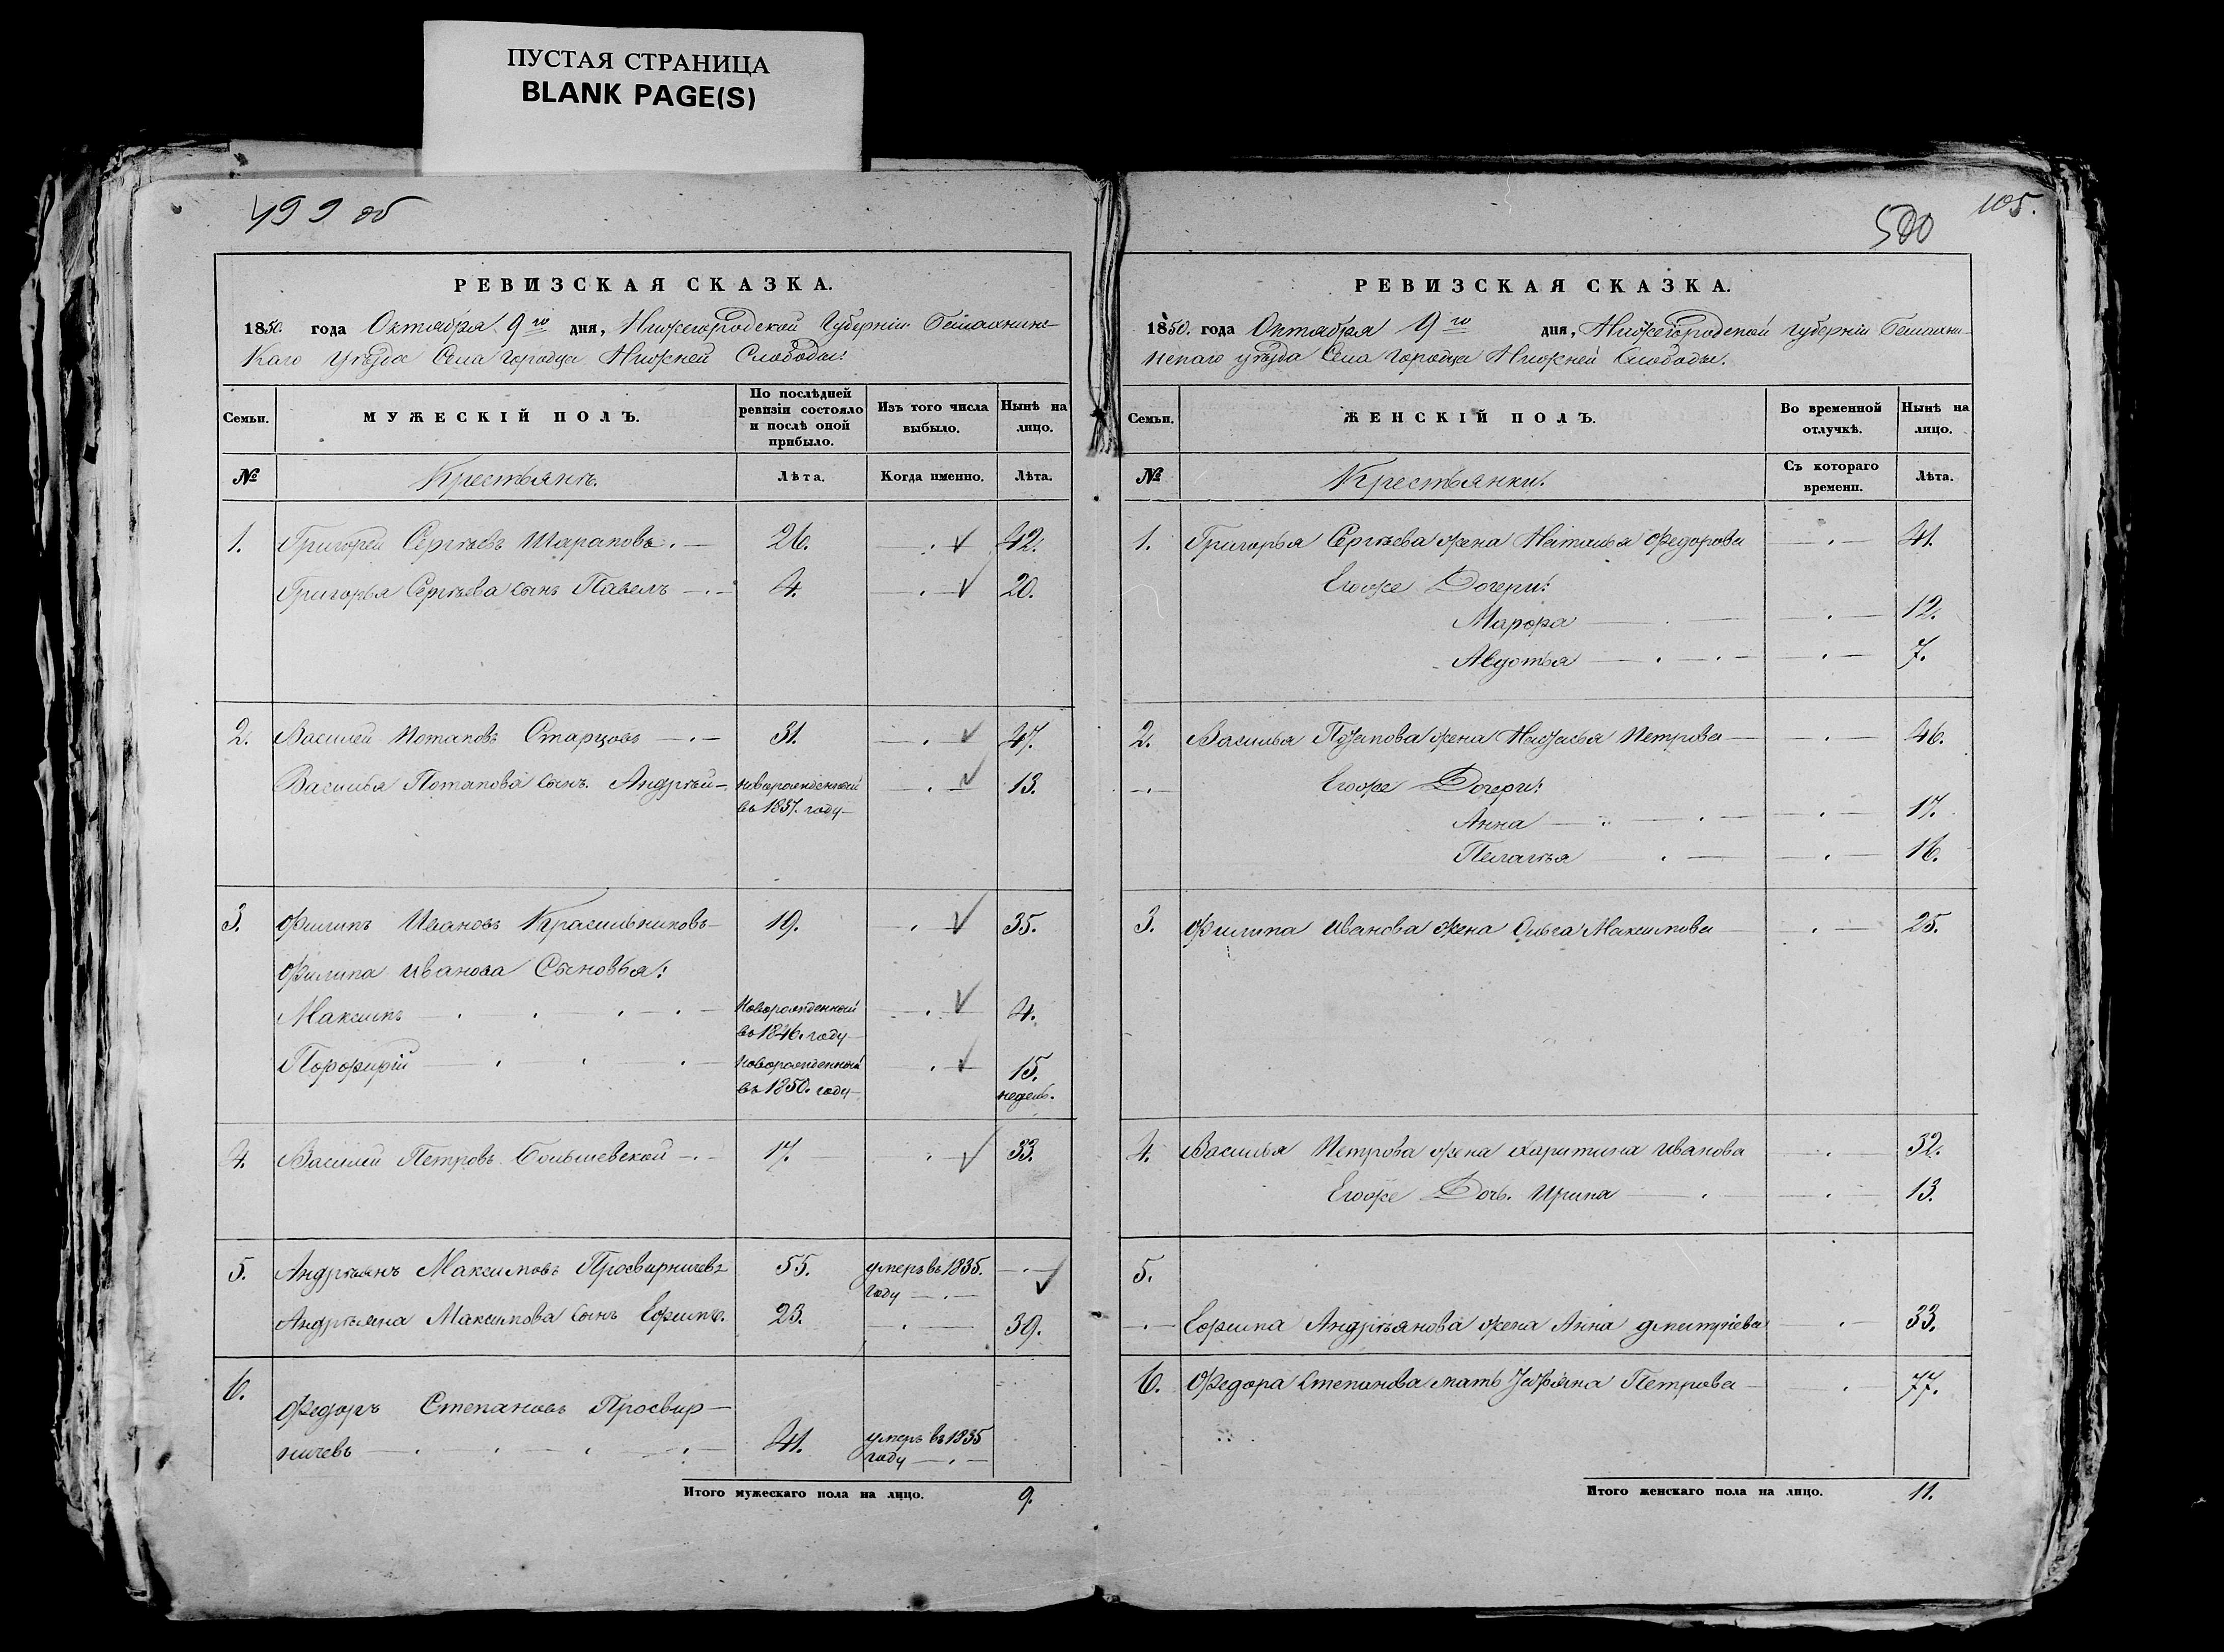 ПУСТАЯ СТРАНИЦА
BLANK PAGE(S)
499 об
РЕВИЗСКАЯ СКАЗКА.
1850. года Октября 9го дня, Нижегородской Губернiи Балахнинс-
Каго Уѣзда Села Городца Нижней Слободы.
Семьи. МУЖЕСКIЙ ПОЛЪ. По послѣдней ревизiи состояло и послѣ оной прибыло. Изъ того числа выбыло. Нынѣ на лицо.
№ Крестьянъ. Лѣта. Когда именно. Лѣта.
1. Григорей Сергѣевъ Шараповъ. 26. 42.
Григорья Сергѣева сынъ Павелъ 4. 20.
2. Василей Потаповъ Старцовъ 31. 47.
Василья Потапова сынъ Андрѣй новорожденный 13.
въ 1837. году
3. Филипъ Ивановъ Красильниковъ 19. 35.
Филипа Иванова Сыновья:
Максимъ Новорожденный 4.
въ 1846. году
Порфирiй Новорожденный 15.
въ 1850. году недель.
4. Василей Петровъ 17. 33.
5. Андрѣянъ Максимовъ Просвирничевъ 55. умеръ въ 1835.
году
Андрѣяна Максимова сынъ Ефимъ. 23. 39.
6. Федоръ Степановъ Просвир-
ничевъ 41. умеръ въ 1835
году
Итого мужескаго пола на лицо. 9.
105.
500
РЕВИЗСКАЯ СКАЗКА.
1850. года Октября 9го дня, Нижегородской губернiи Балахни-
нскаго уѣзда Села Городца Нижней Слободы.
Семьи. ЖЕНСКIЙ ПОЛЪ. Во временной отлучкѣ. Нынѣ на лицо.
№ Крестьянки. Съ котораго времени. Лѣта.
1. Григорья Сергѣева жена Наталья Федорова 41.
Егоже Дочери:
Марфа 12.
Авдотья 7.
2. Василья Потапова жена Настасья Петрова 46.
Егоже Дочери:
Анна 17.
Пелагѣя 16.
3. Филипа Иванова жена Ольга Максимова 25.
4. Василья Петрова жена Харитина Иванова 32.
Егоже Дочь Ирина 13.
5.
Ефима Андрѣянова жена Анна Дмитрiева 33.
6. Федора Степанова мать Петрова 77.
Итого женскаго пола на лицо. 11.